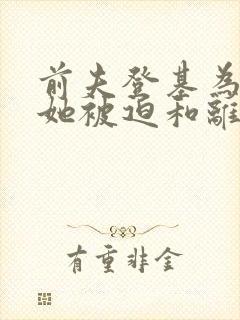 前夫登基為
她被迫和離
有重非金